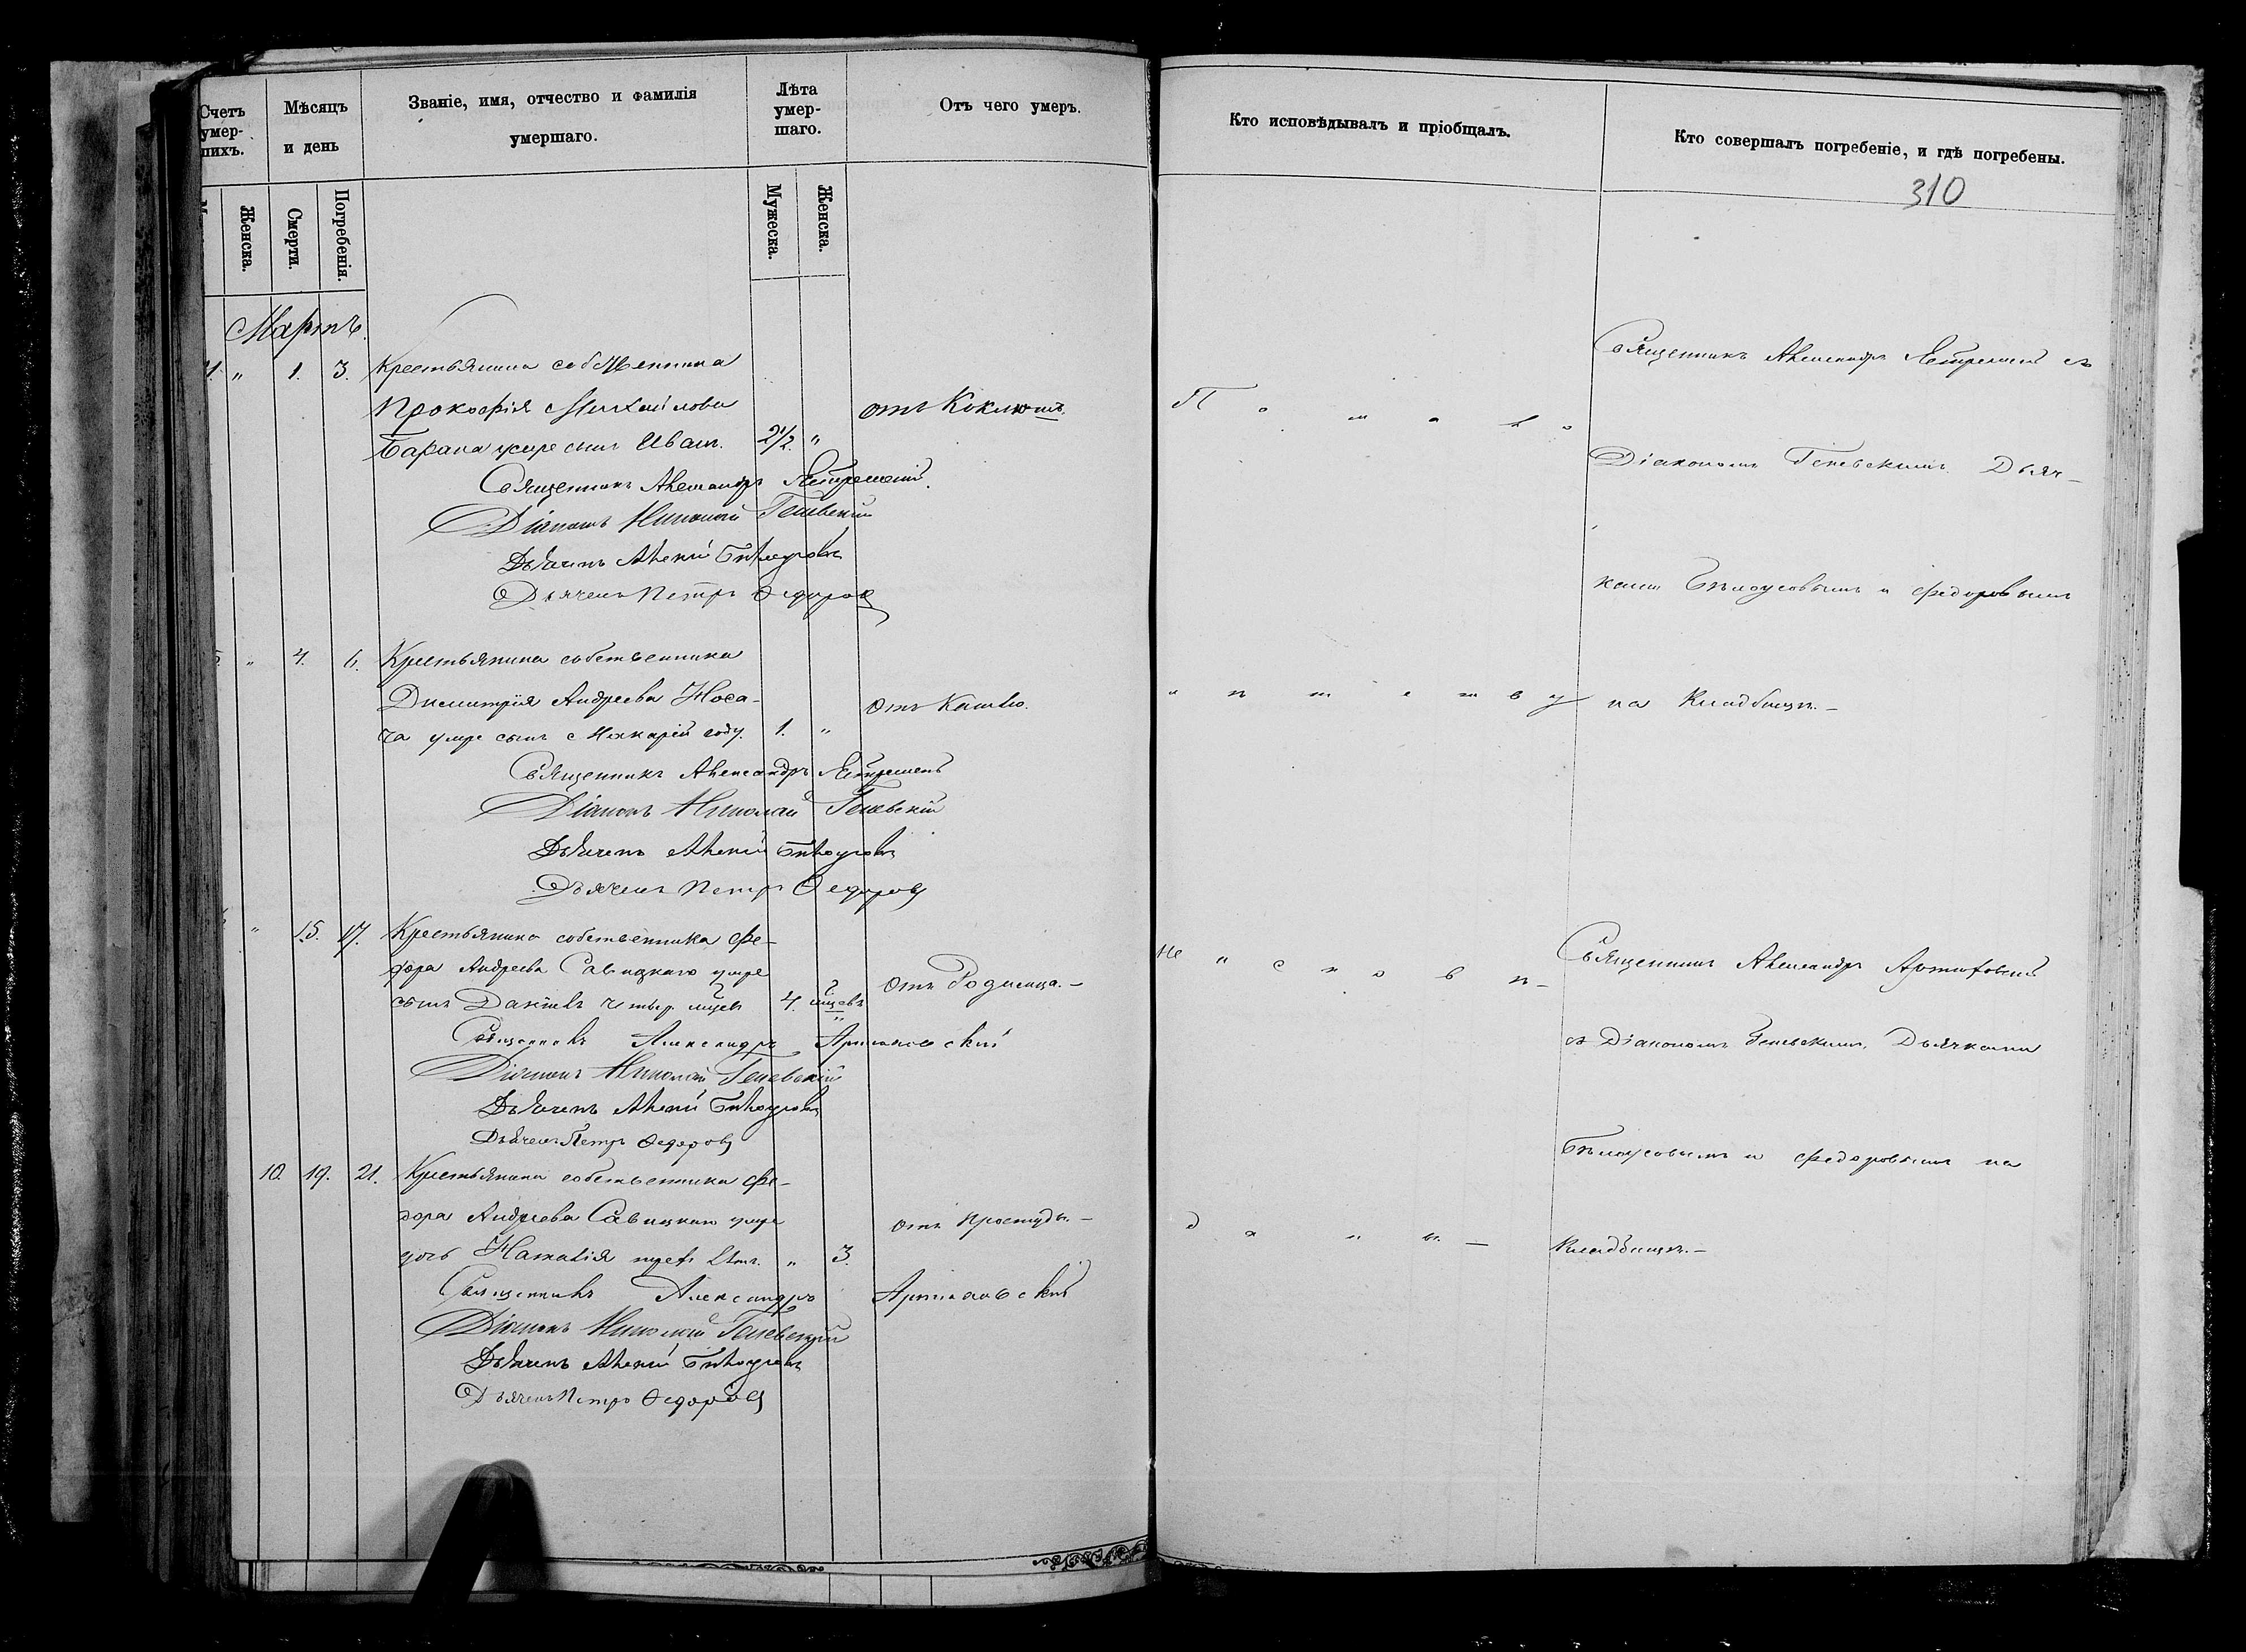 Счетъ умер- шихъ.
Мѣсяцъ и день
Званіе, имя, отчество и фамилія умершаго.
Лѣта умер- шаго.
Отъ чего умеръ.
Кто исповѣдывалъ и пріобщалъ.
Кто совершалъ погребеніе, и гдѣ погребены.
310
Женска.
Смерти.
Погребенія.
Мужеска.
Женска.
Мартъ.
4. " 1. 3. Крестьянина собственника
Прокофія Михайлова
отъ Коклюша
Барана умре сынъ Иванъ. 2½. "
Священникъ Александръ
Діаконъ Николай Геневскій
Дьячекъ Алексій Бѣлоусовъ
Дьячекъ Петръ Ѳедоровъ
5. " 4. 6. Крестьянина собственника
Димитрія Андреева Носа-
отъ Кашлю.
ча умре сынъ Макарій году. 1. "
Священникъ Александръ
Діаконъ Николай Геневскій
Дьячекъ Алексій Бѣлоусовъ
Дьячекъ Петръ Ѳедоровъ
" 15. 17. Крестьянина собственника Фе-
дора Андреева Савицкаго умре
отъ Родимца.-
сынъ Даніилъ 4.
Священникъ Александръ
Діаконъ Николай Геневскій
Дьячекъ Алексій Бѣлоусовъ
Дьячекъ Петръ Ѳедоровъ
10. 19. 21. Крестьянина собственника Фе-
дора Андреева Савицкаго умре
отъ Простуды.-
дочь Наталія трехъ лѣтъ. " 3.
Священникъ Александръ
Діаконъ Николай Геневскій
Дьячекъ Алексій Бѣлоусовъ
Дьячекъ Петръ Ѳедоровъ
П о м а л о
л ѣ т с т в у
Не и с п о в ѣ-
д а н ы.-
Священникъ Александръ съ
Діакономъ Геневскимъ Дьяч-
ками Бѣлоусовымъ и Федоровымъ
на Кладбищѣ.-
Священникъ Александръ
съ Діакономъ Геневскимъ, Дьячками
Бѣлоусовымъ и Федоровымъ на
Кладбищѣ.-